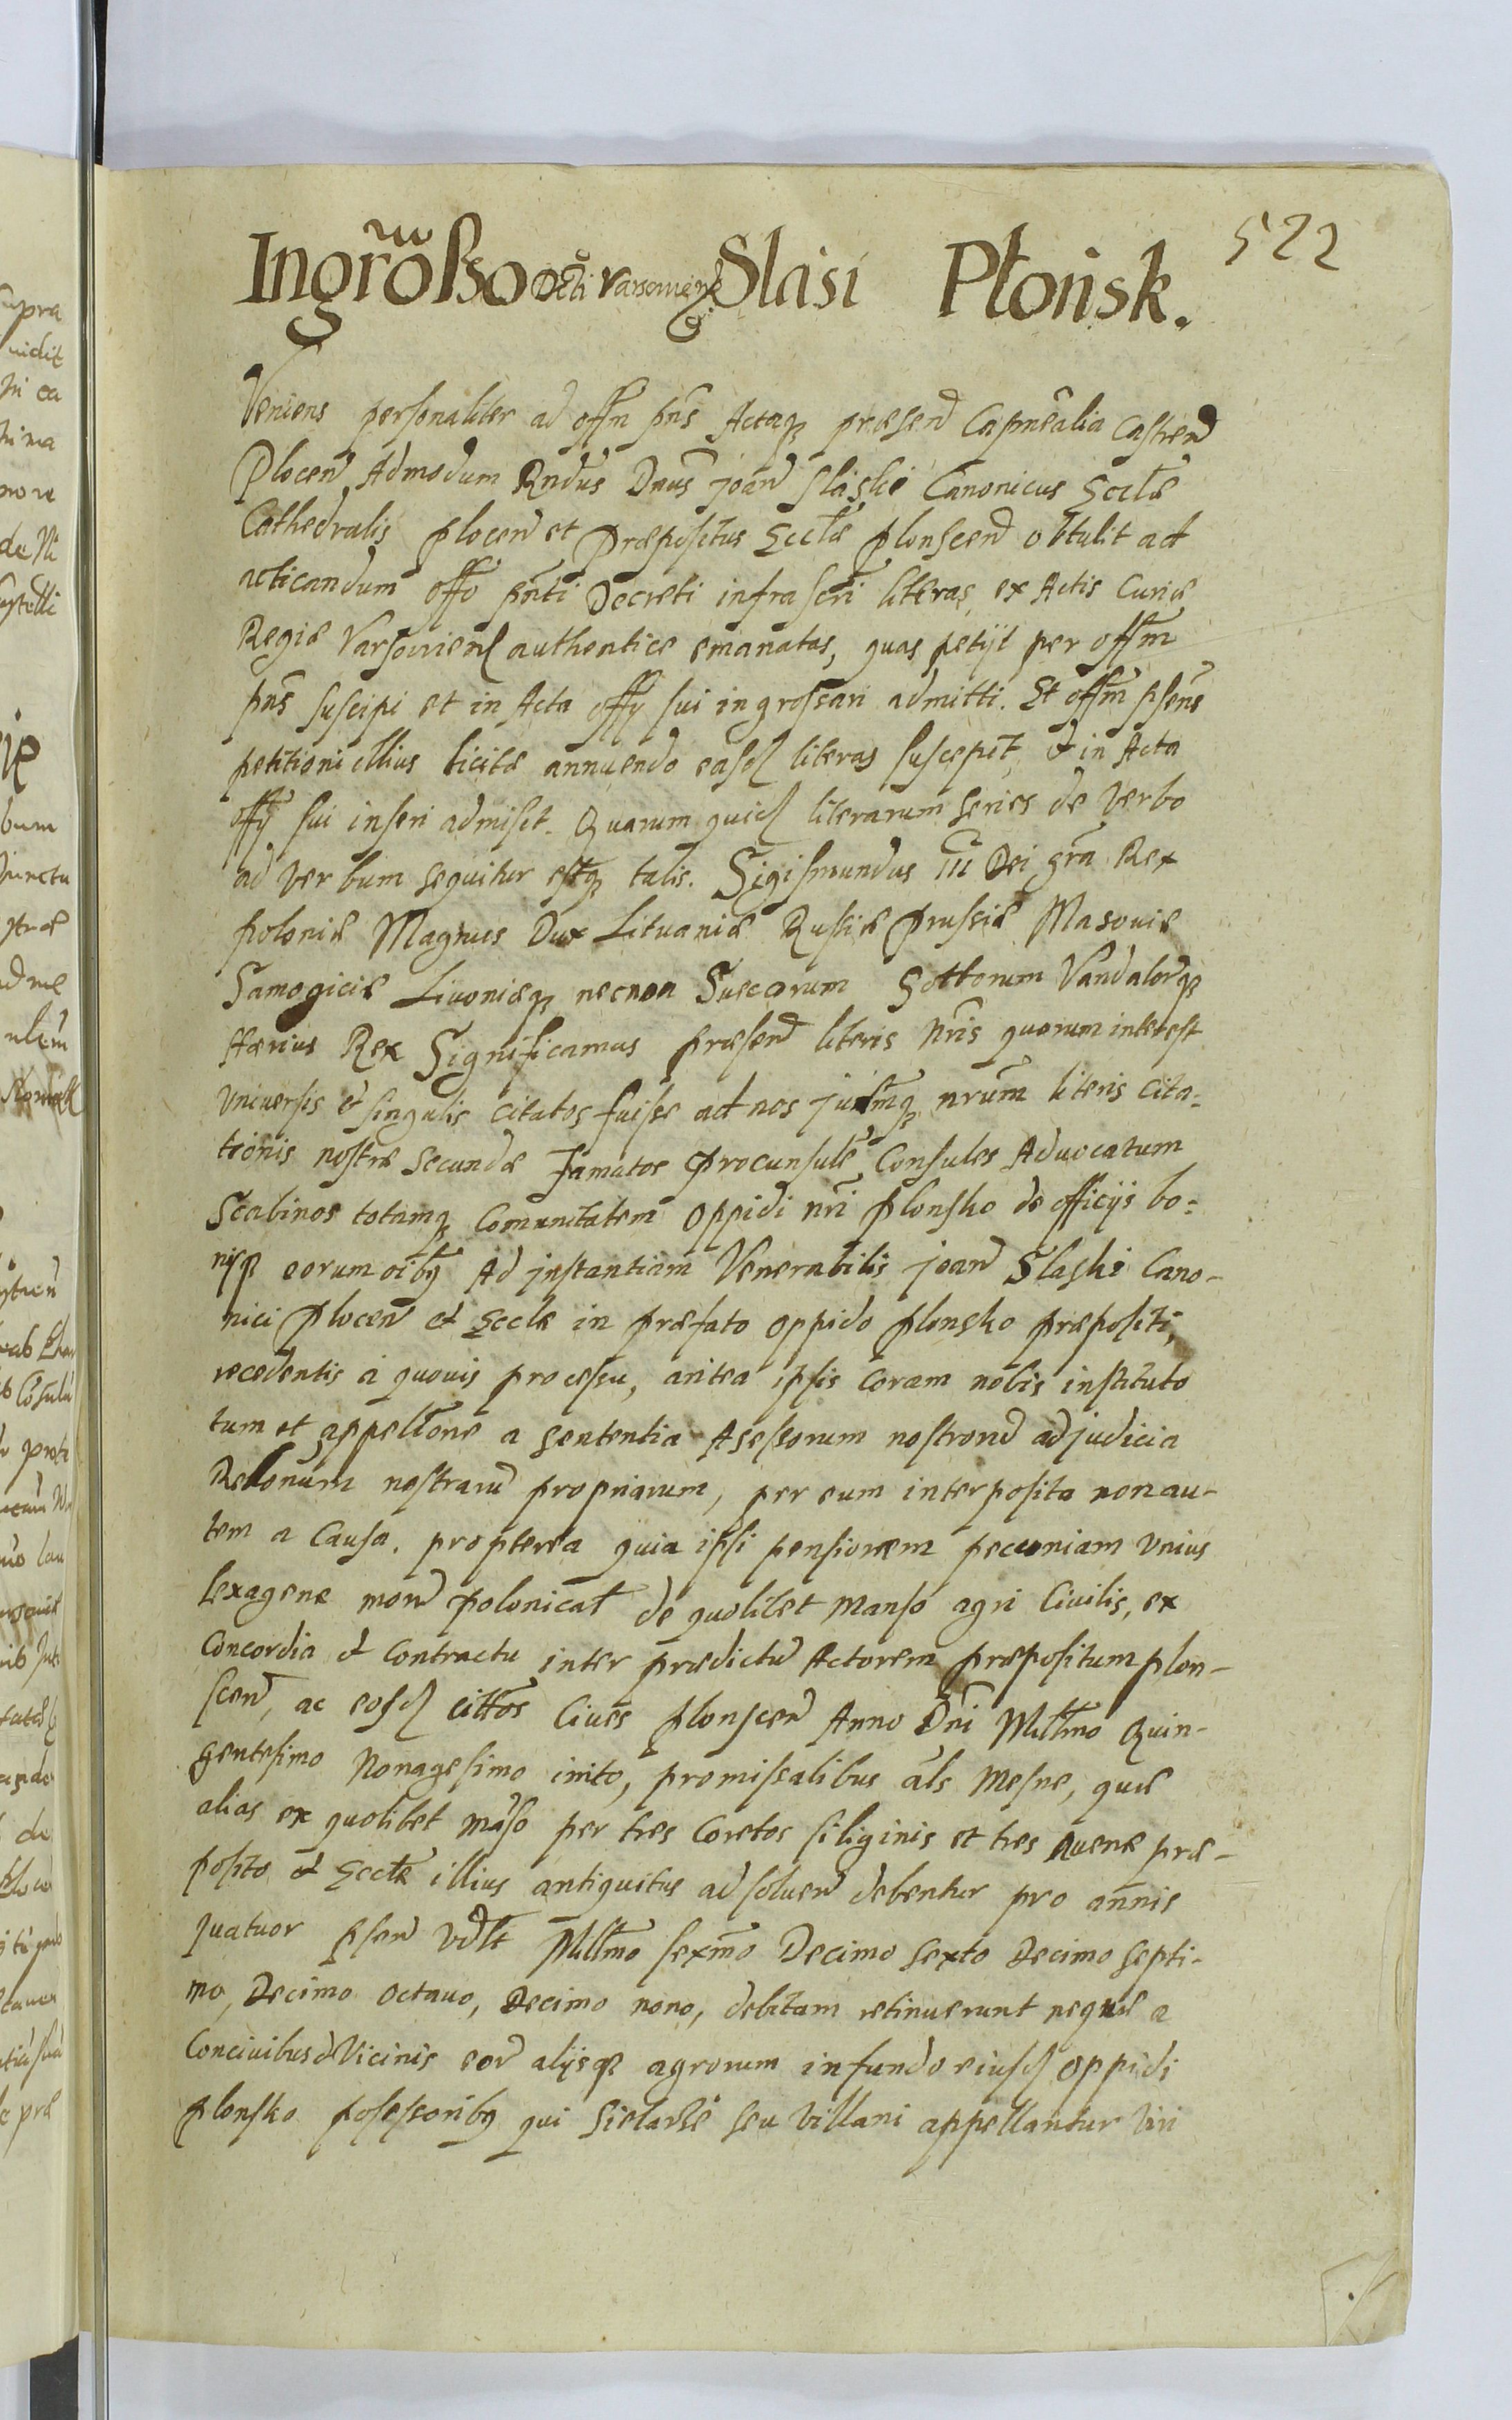 522
Ingro͠ßo Dcti Varsovien Slasi Płońsk.
Veniens personaliter ad offm pn̄s Actaq3 præsen Capn̄ealia Castren
Plocen Admodum Rndus Dnus joan Slaski Canonicus Eccl̄æ
Cathedralis plocen et Præpositus Eccl̄æ plonscen obtulit ad
acticandum offo pn̄ti Decreti infrascri literas ex Actis Curiæ
Regiæ Varsovien authentice emanatas, quas petijt per offm̄
pn̄s suscipi et in Acta offy sui ingrossari admitti. Et offm̄ psens
petitioni illius licitæ annuendo easd literas suscepit, & in Acta
offy sui inseri admisit. Quarum quid literarum series de verbo
ad verbum sequitur estq3 talis. Sigismundus III Dei gr̄a Rex
poloniæ Magnus Dux Lituaniæ Russiæ prussiæ Masoviæ
Samogiciæ Livoniæq3 necnon Suecorum Gottorum Vandalorq3
Hærius Rex Significamus præsen literis nr̄is quorum interest
Universis & singulis citatos fuisse ad nos juđmq3 nrum literis cita-
tionis nostræ secundæ Famatos Procunsule Consules Advocatum
Scabinos totamq3 Comunitatem Oppidi nr̄i plonsko de officijs bo-
nisq3 eorum oibq Ad instantiam Venerabilis joan Slaski Cano-
nici Plocen & Eccle in præfato oppido plonsko præpositi,
recedentis á quovis processu, antea ipsis coram nobis instituto
tum et appell̄one a sententia Assessorum nostrorum ad judicia
Relonum nostraru propriarum, per eum interposita non au-
tem a Causa. propterea quia ipsi pensionem pecuniam unius
sexagene mon polonical de quolibet manso agri Civilis, ex
Concordia & Contractu inter prædictu Actorem præpositum plon-
scen, ac eosd citt̄os Cives plonscen Anno Dn̄i Mill̄mo Quin-
gentesimo Nonagesimo inito, promissalibus als Mesne, quæ
alias ex quolibet ma͂so per tres Coretos siliginis et tres avenæ præ-
posito & Eccl̄æ illius antiquitus ad solven debentur pro annis
quatuor psen vdlt Mill̄mo sexm̄o Decimo sexto Decimo septi-
mo, Decimo octavo, Decimo nono, debitam retinuerunt neq3 a
Concivibus & Vicinis eor alijsq3 agrorum in fundo eiusd oppidi
plonsko possessoribq qui Sielarse seu villani appellantur Viri